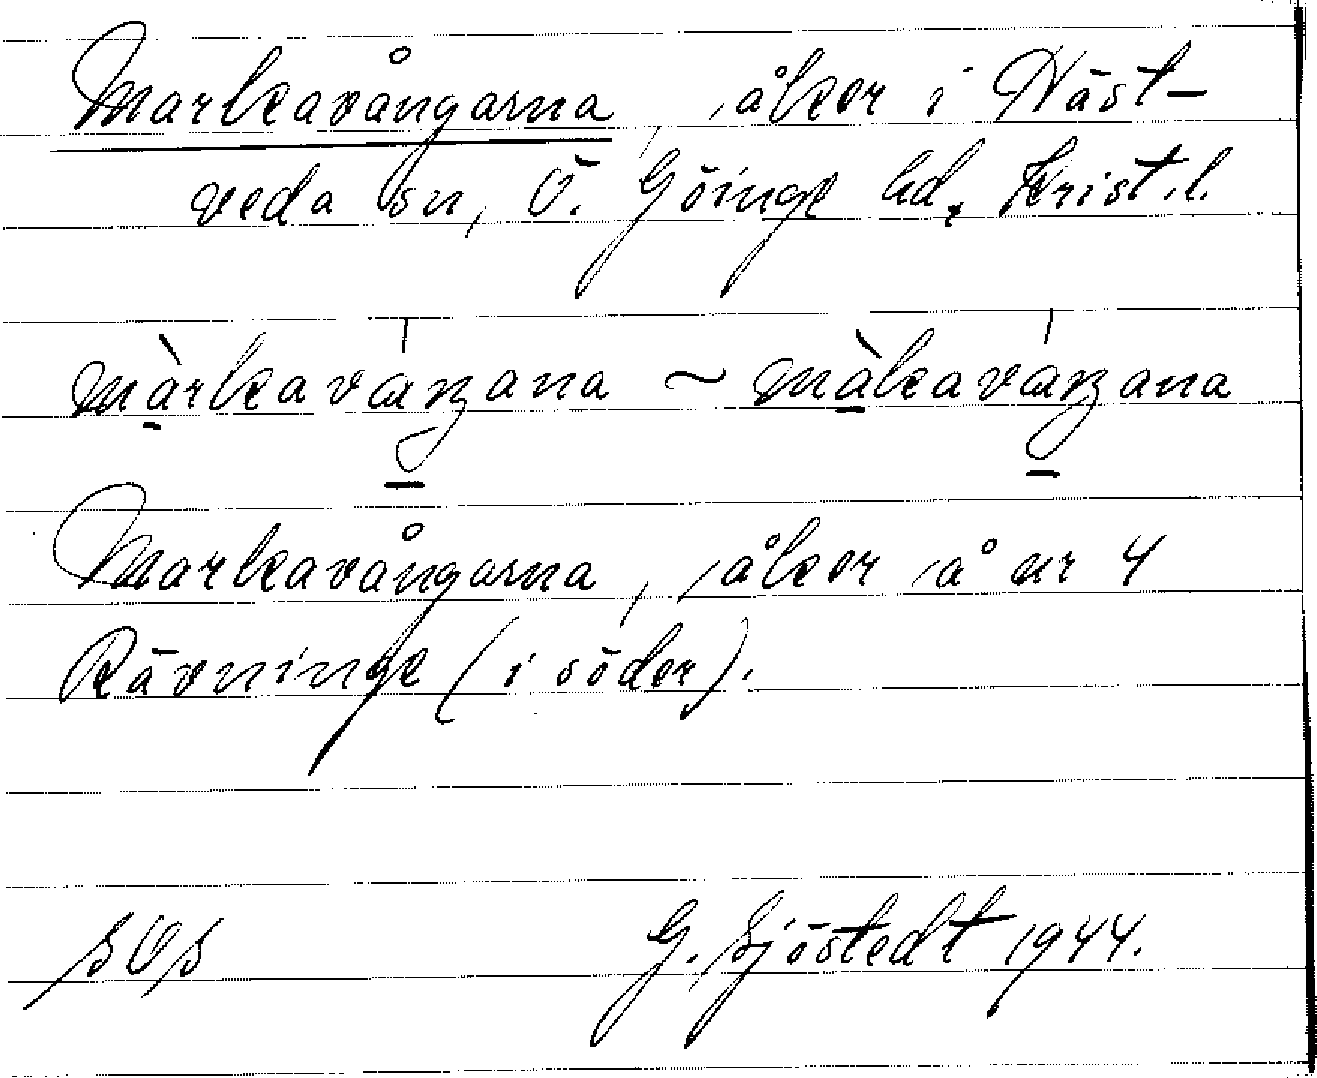 Markavångarna, åker i Häst-
veda sn, Ö. Göinge hd, Krist.l.
màrkavaŋana ~ màkavaŋana
Markavångarna, åker å nr 4
Rävninge (i söder).
SOS G. Sjöstedt 1944.